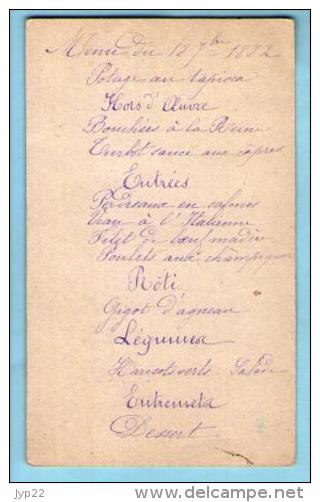 Menu du 12 7bre 1882
Potage au tapioca
Hors d'Œuvre
Bouchées à la Reine
Turbot sauce aux câpres
Entrées
Perdreaux en salmis
Veau à l'Italienne
Filet de bœuf madère
Poulets aux champignons
Rôti
Gigot d'agneau
Légumes
Haricots verts - Salade
Entremets
Dessert
jyp22
delcampe.net